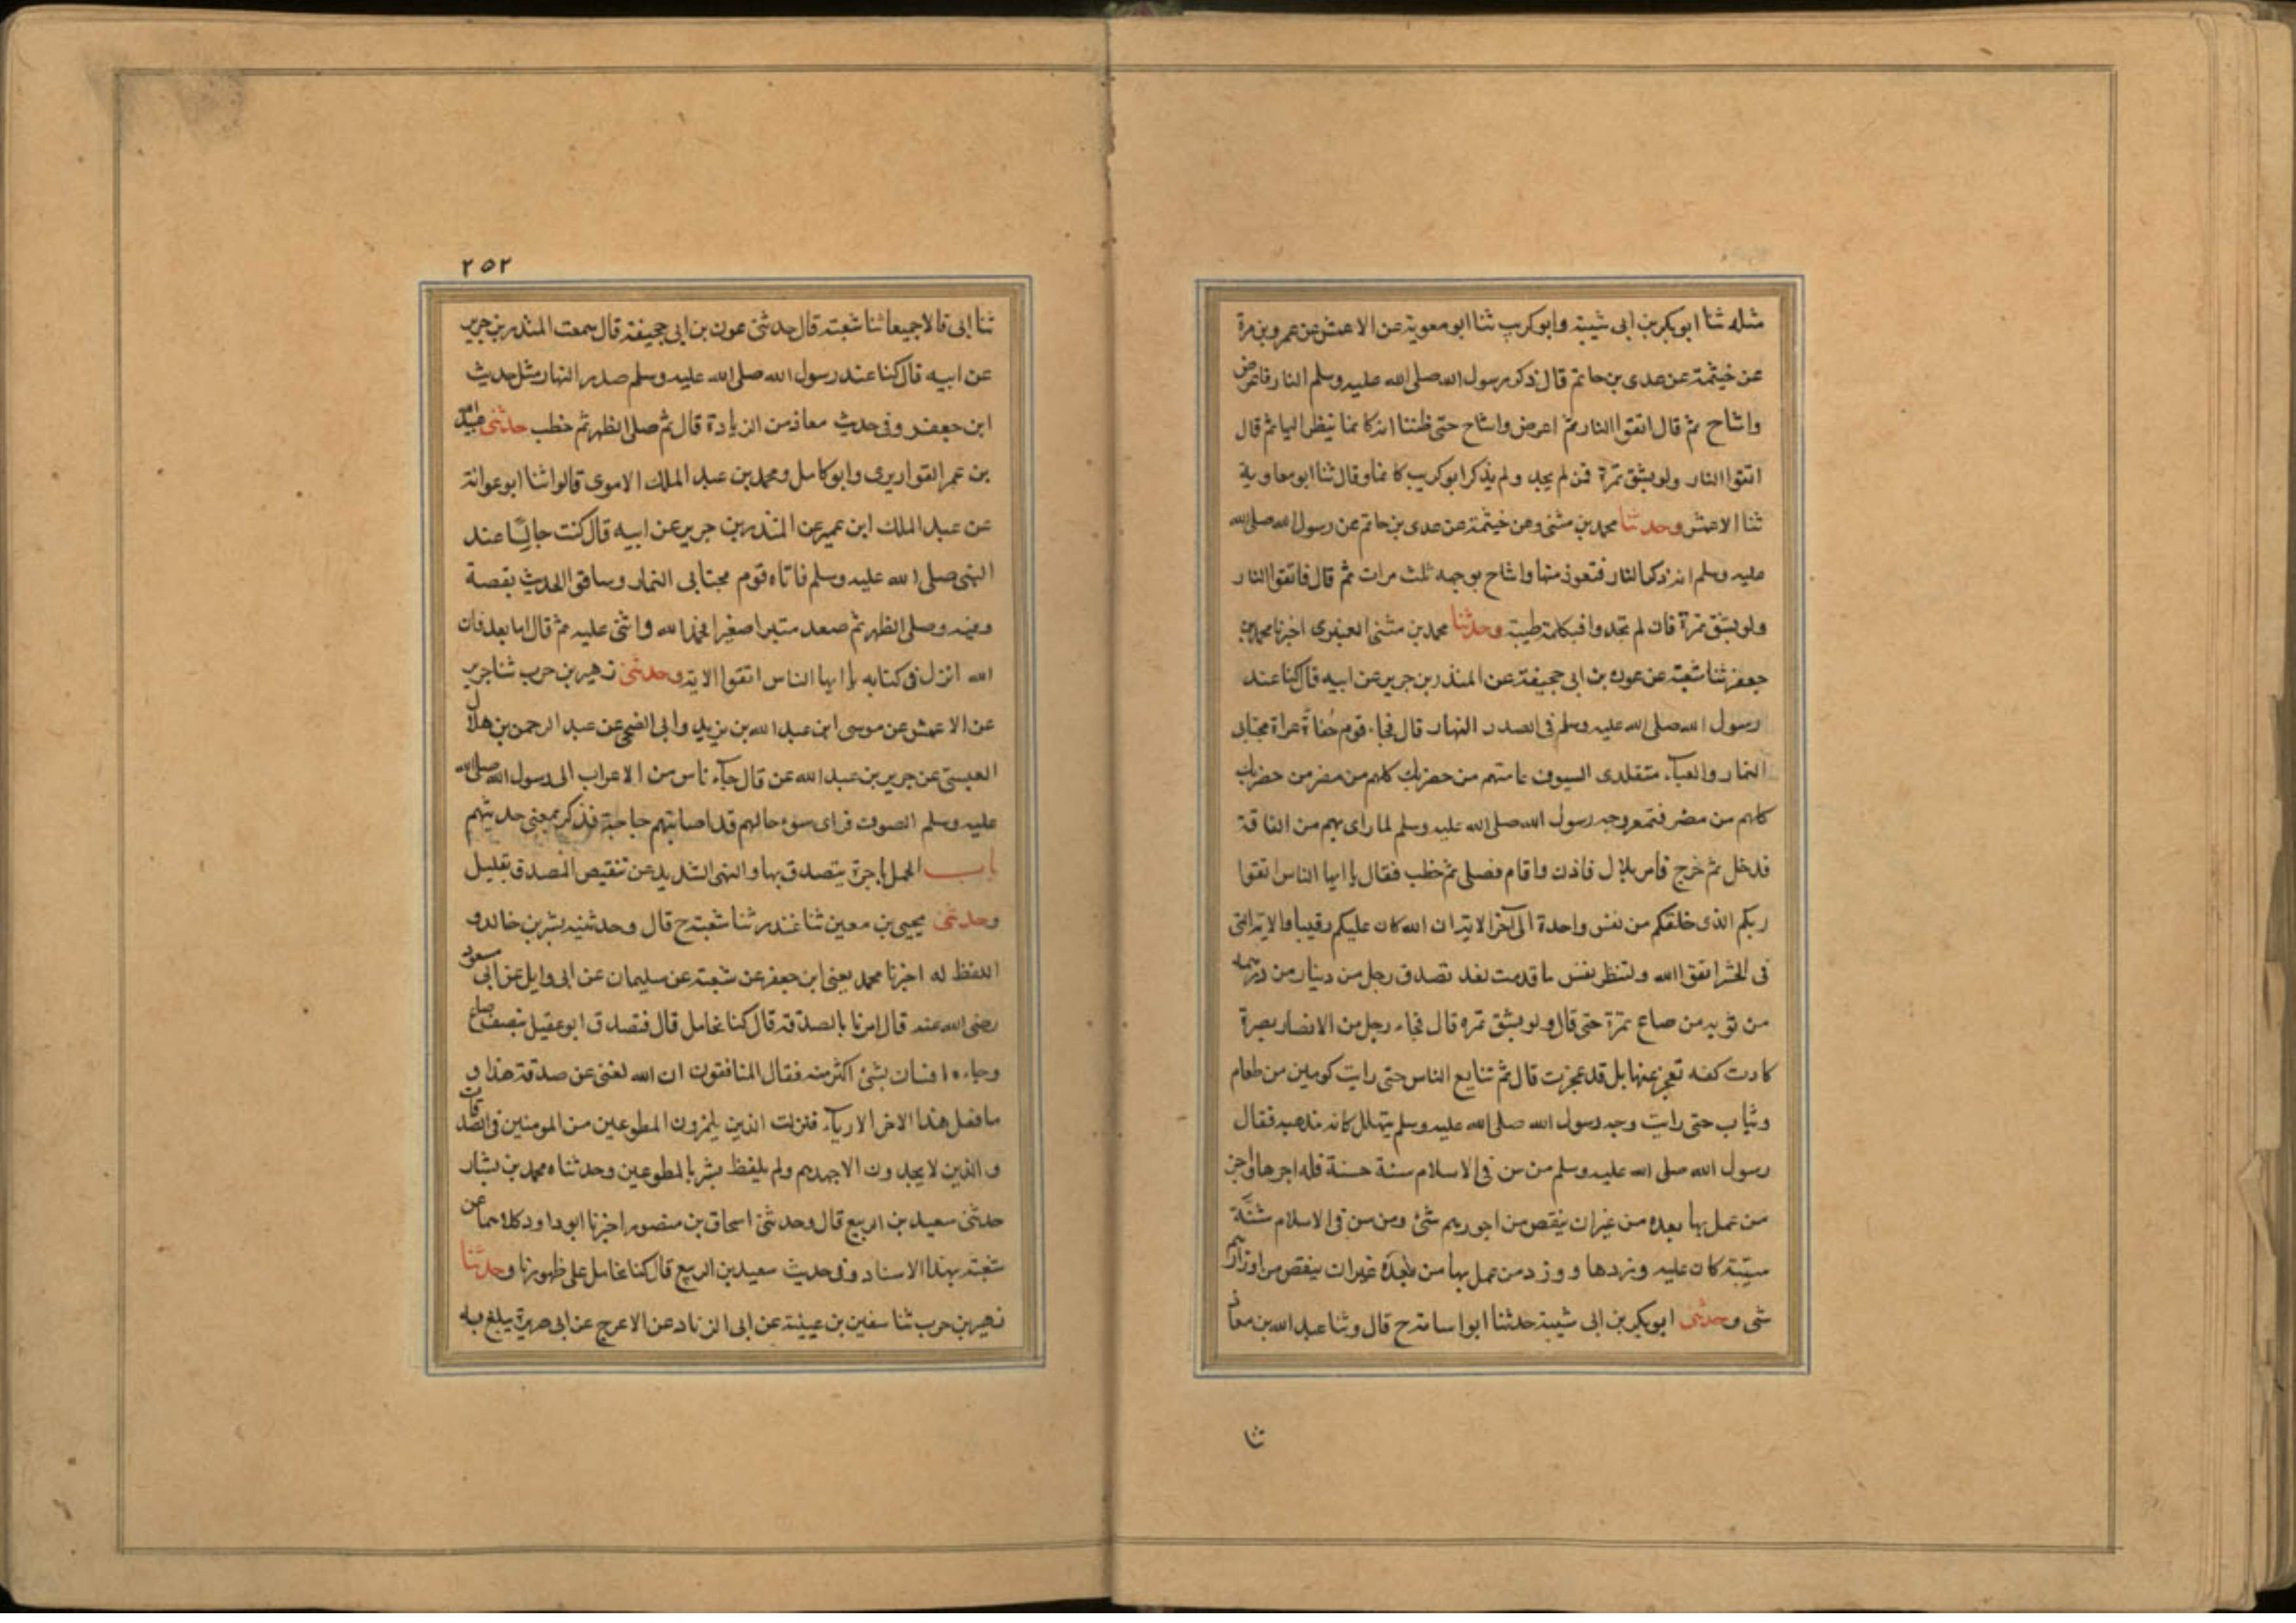 مثله ثنا ابوبكر بن ابى شيبة وابوكريب ثنا ابو معوية عن الاعمش عن عمرو بن مرة
عن خيثمة عن عدى بن حاتم قال ذكر رسول الله صلى الله عليه وسلم النار فاعرض
واشاح ثم قال اتقوا النار ثم اعرض واشاح حتى ظننا انه كانما ينظر اليها ثم قال
اتقوا النار ولو بشق تمرة فمن لم يجد ولم يذكر ابوكريب كانما وقال ثنا ابو معاوية
ثنا الاعمش وحدثنا محمد بن مثنى وعن خيثمة عن عدى بن حاتم عن رسول الله صلى الله
عليه وسلم انه ذكر النار فتعوذ منها واشاح بوجهه ثلث مرات ثم قال فاتقوا النار
ولو بشق تمرة فان لم تجدوا فبكلمة طيبة وحدثنا محمد بن مثنى العنبرى اخبرنا محمد بن
جعفر ثنا شعبة عن عون بن ابى جحيفة عن المنذر بن جرير عن ابيه قال كنا عند
رسول الله صلى الله عليه وسلم فى الصدر النهار قال فجاء قوم حُفاةً عراة مجتابى
النمار والعباء متقلدى السيوف عامتهم من حضربك كلهم من مضر من حضربك
كلهم من مضر فتمعر وجه رسول الله صلى الله عليه وسلم لما راى بهم من الفاقة
فدخل ثم خرج فامر بلال فاذن واقام فصلى ثم خطب فقال يا ايها الناس اتقوا
ربكم الذى خلقكم من نفس واحدة الى آخر الاية ان الله كان عليكم رقيبا والاية التى
فى الحشر اتقوا الله ولتنظر نفس ما قدمت لغد تصدق رجل من دينار من درهمه
من ثوبه من صاع تمرة حتى قال ولو بشق تمره قال فجاء رجل من الانصار بصرة
كادت كفه تعجز عنها بل قد عجزت قال ثم تتابع الناس حتى رايت كومين من طعام
وثياب حتى رايت وجه رسول الله صلى الله عليه وسلم يتهلل كانه مذهبه فقال
رسول الله صلى الله عليه وسلم من سن فى الاسلام سنة حسنة فله اجرها واجر
من عمل بها بعده من غير ان ينقص من اجورهم شئ ومن سن فى الاسلام سُنَّةً
سيئة كان عليه وزرها ووزر من عمل بها من بعده غيران ينقص من اوزارهم
شى وحدثنى ابوبكر بن ابى شيبة حدثنا ابو اسامة ح قال وثنا عبد الله بن معاذ
ثنا
٢٥٢
ثنا ابى قالا جميعا ثنا شعبة قال حدثنى عون بن ابى جحيفة قال سمعت المنذر بن جرير
عن ابيه قال كنا عند رسول الله صلى الله عليه وسلم صدر النهار مثل حديث
ابن جعفر وفى حديث معاذ من الزيادة قال ثم صلى الظهر ثم خطب حدثنى عبيد الله
بن عمر القواريرى وابو كامل ومحمد بن عبد الملك الاموى قالوا ثنا ابو عوانة
عن عبد الملك ابن عمير عن المنذر بن جرير عن ابيه قال كنت جالسًا عند
النبى صلى الله عليه وسلم فاتاه قوم مجتابى النمار وساقوا الحديث بقصة
وفيه وصلى الظهر ثم صعد منبرا صغيرا فحمد الله واثنى عليه ثم قال اما بعد فان
الله انزل فى كتابه يا ايها الناس اتقوا الاية وحدثنى زهير بن حرب ثنا جرير
عن الاعمش عن موسى ابن عبد الله بن يزيد وابى الضحى عن عبد الرحمن بن هلال
العبسى عن جرير بن عبد الله عن قال جآء ناس من الاعراب الى رسول الله صلى الله
عليه وسلم الصوف فراى سوء حالهم قد اصابتهم حاجة فذكر بمعنى حديثهم
باب الحمل باجرة يتصدق بها والنهى الشديد عن تنقيص المصدق بقليل
وحدثنى يحيى بن معين ثنا غندر ثنا شعبة ح قال وحدثنيه بشر بن خالد و
اللفظ له اخبرنا محمد يعنى ابن جعفر عن شعبة عن سليمان عن ابى وايل عن ابى مسعود
رضى الله عنه قال امرنا بالصدقة قال كنا نحامل قال فتصدق ابو عقيل بنصف صاع
وجاءه انسان بشئ اكثر منه فقال المنافقون ان الله لغنى عن صدقة هذا و
ما فعل هذا الاخر الا رياء فنزلت الذين يلمزون المطوعين من المومنين فى الصدقات
والذين لا يجدون الا جهدهم ولم يلفظ بشر بالمطوعين وحدثناه محمد بن بشار
حدثنى سعيد بن الربيع قال وحدثنى اسحاق بن منصور اخبرنا ابوداود كلاهما عن
شعبة بهذا الاسناد وفى حديث سعيد بن الربيع قال كنا نحامل على ظهورنا وحدثنا
زهير بن حرب ثنا سفين بن عيينة عن ابى الزناد عن الاعرج عن ابى هريرة يبلغ به